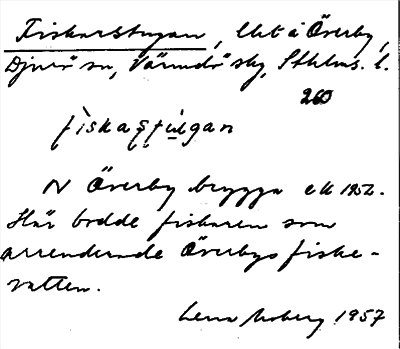 Fiskarstugan, lht å Överby,
Djurö sn, Värmdö skg, Sthlms. l.
260
fìskaṣtúgan
N Överby brygga ek 1952.
Här bodde fiskaren som
arrenderade Överbys fiske-
vatten.
Lena Moberg 1957